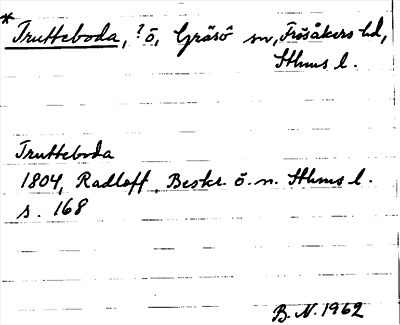 * Trutteboda, ? ö, Gräsö sn, Frösåkers hd,
Sthms l.
Trutteboda
1804, Radloff, Beskr. ö. n. Sthms l.
s. 168
B. N. 1962